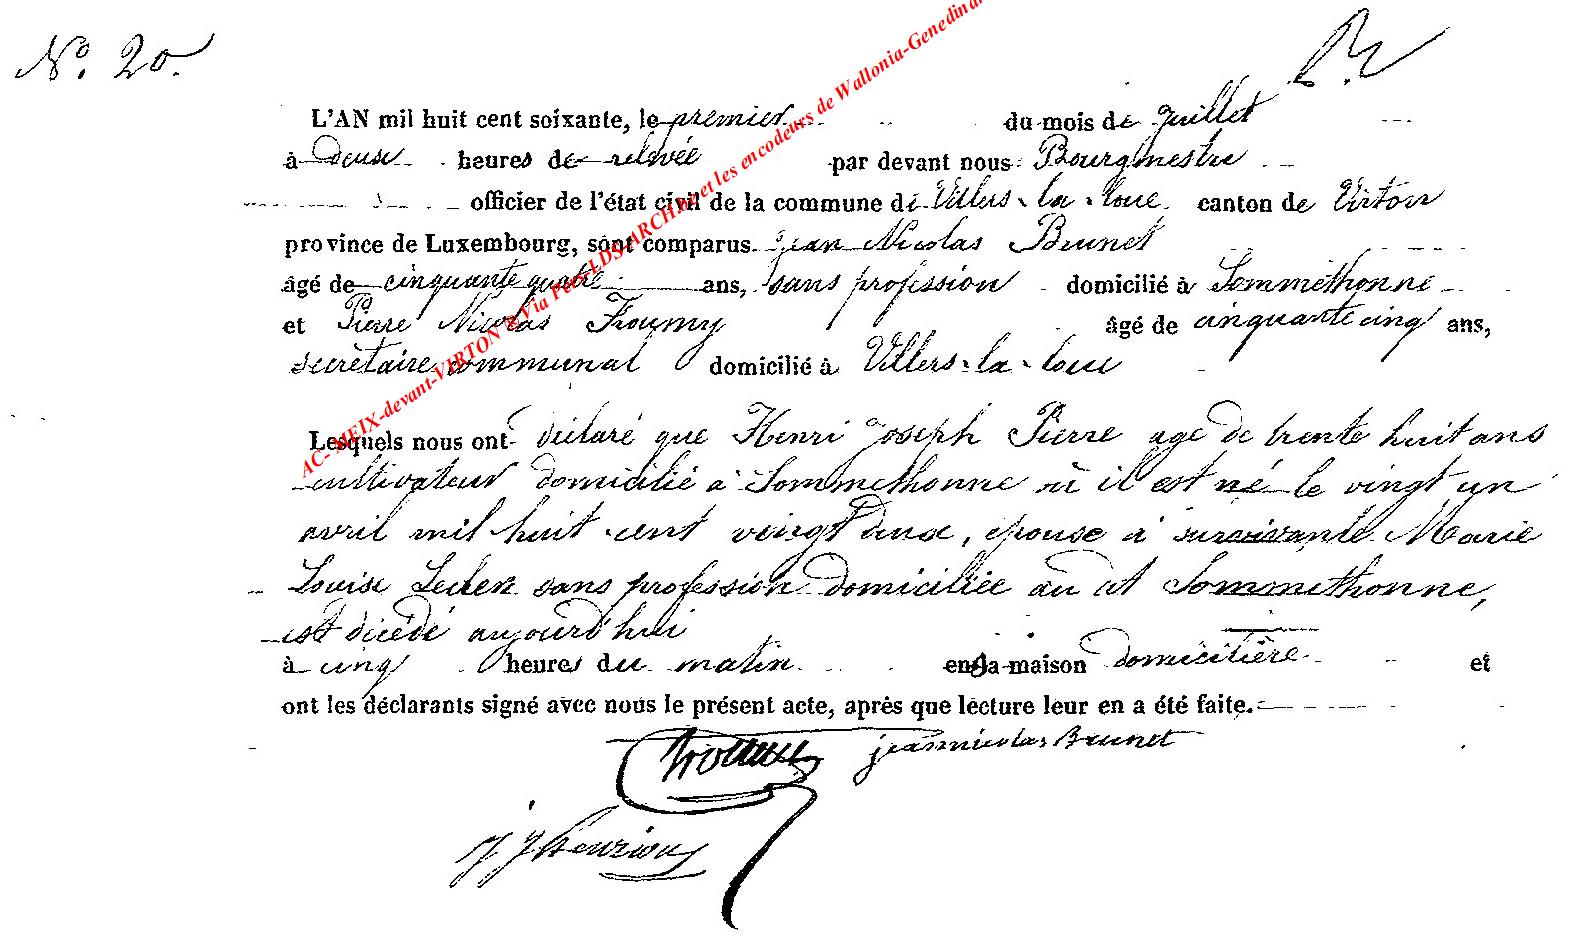 N.º 20.
L'AN mil huit cent soixante, le premier du mois de juillet
à Deux heures de relevée par devant nous Bourgmestre
officier de l'état civil de la commune de Villers-la-loue canton de Virton
province de Luxembourg, sont comparus jean Nicolas Brunet
âgé de cinquante quatre ans, sans profession domicilié à Sommethonne
et Pierre Nicolas Froumy âgé de cinquante cinq ans,
secrétaire communal domicilié à Villers-la-loue
Lesquels nous ont déclaré que Henri joseph Pierre agé de trente huit ans
cultivateur domicilié à Sommethonne où il est né le vingt un
avril mil huit cent vingt deux, epouse à survivante Marie
Louise sans profession domiciliée au dt Sommethonne,
est décédé aujourd'hui
à cinq heures du matin en sa maison domicilière et
ont les déclarants signé avec nous le présent acte, après que lecture leur en a été faite.
jeannicolas Brunet
AC-MEIX-devant-VIRTON & Via et les encodeurs de Wallonia-Genedinar